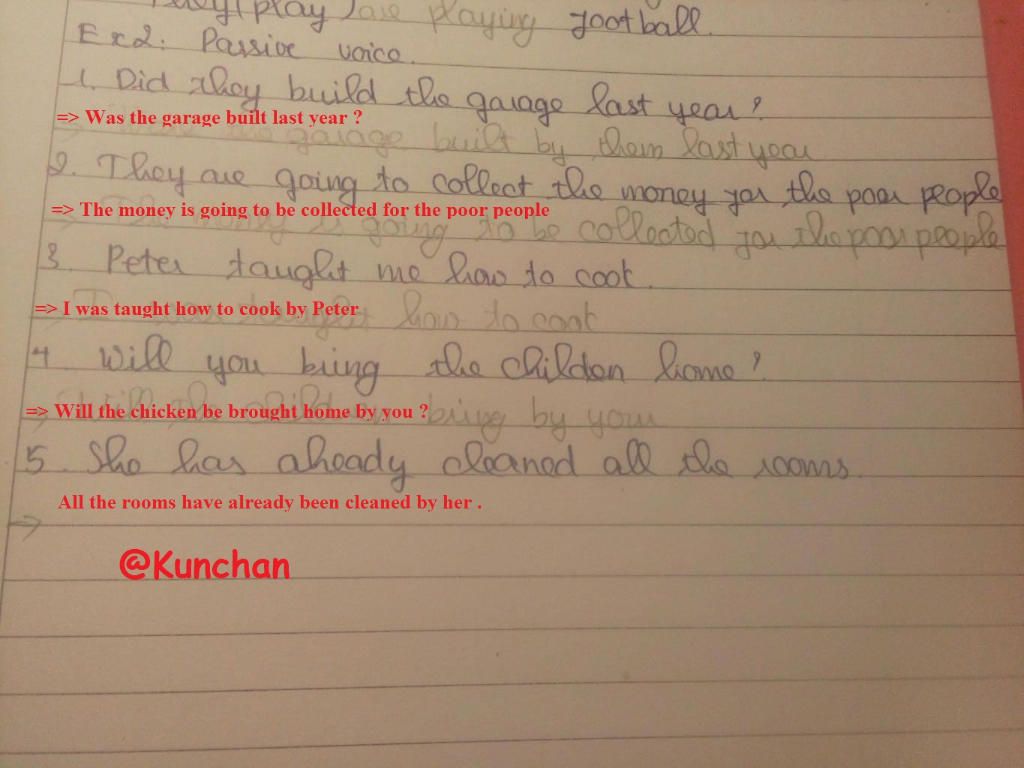 They (play) are playing football.
Ex2: Passive voice.
1. Did they build the garage last year?
=> Was the garage built last year ?
the garage built by them last year
2. They are going to collect the money for the poor people
=> The money is going to be collected for the poor people
The money is going to be collected for the poor people
3. Peter taught me how to cook.
=> I was taught how to cook by Peter
I was taught how to cook
4. Will you bring the children home?
=> Will the chicken be brought home by you ?
Will the bring by you
5. She has already cleaned all the rooms.
All the rooms have already been cleaned by her .
=>
@Kunchan